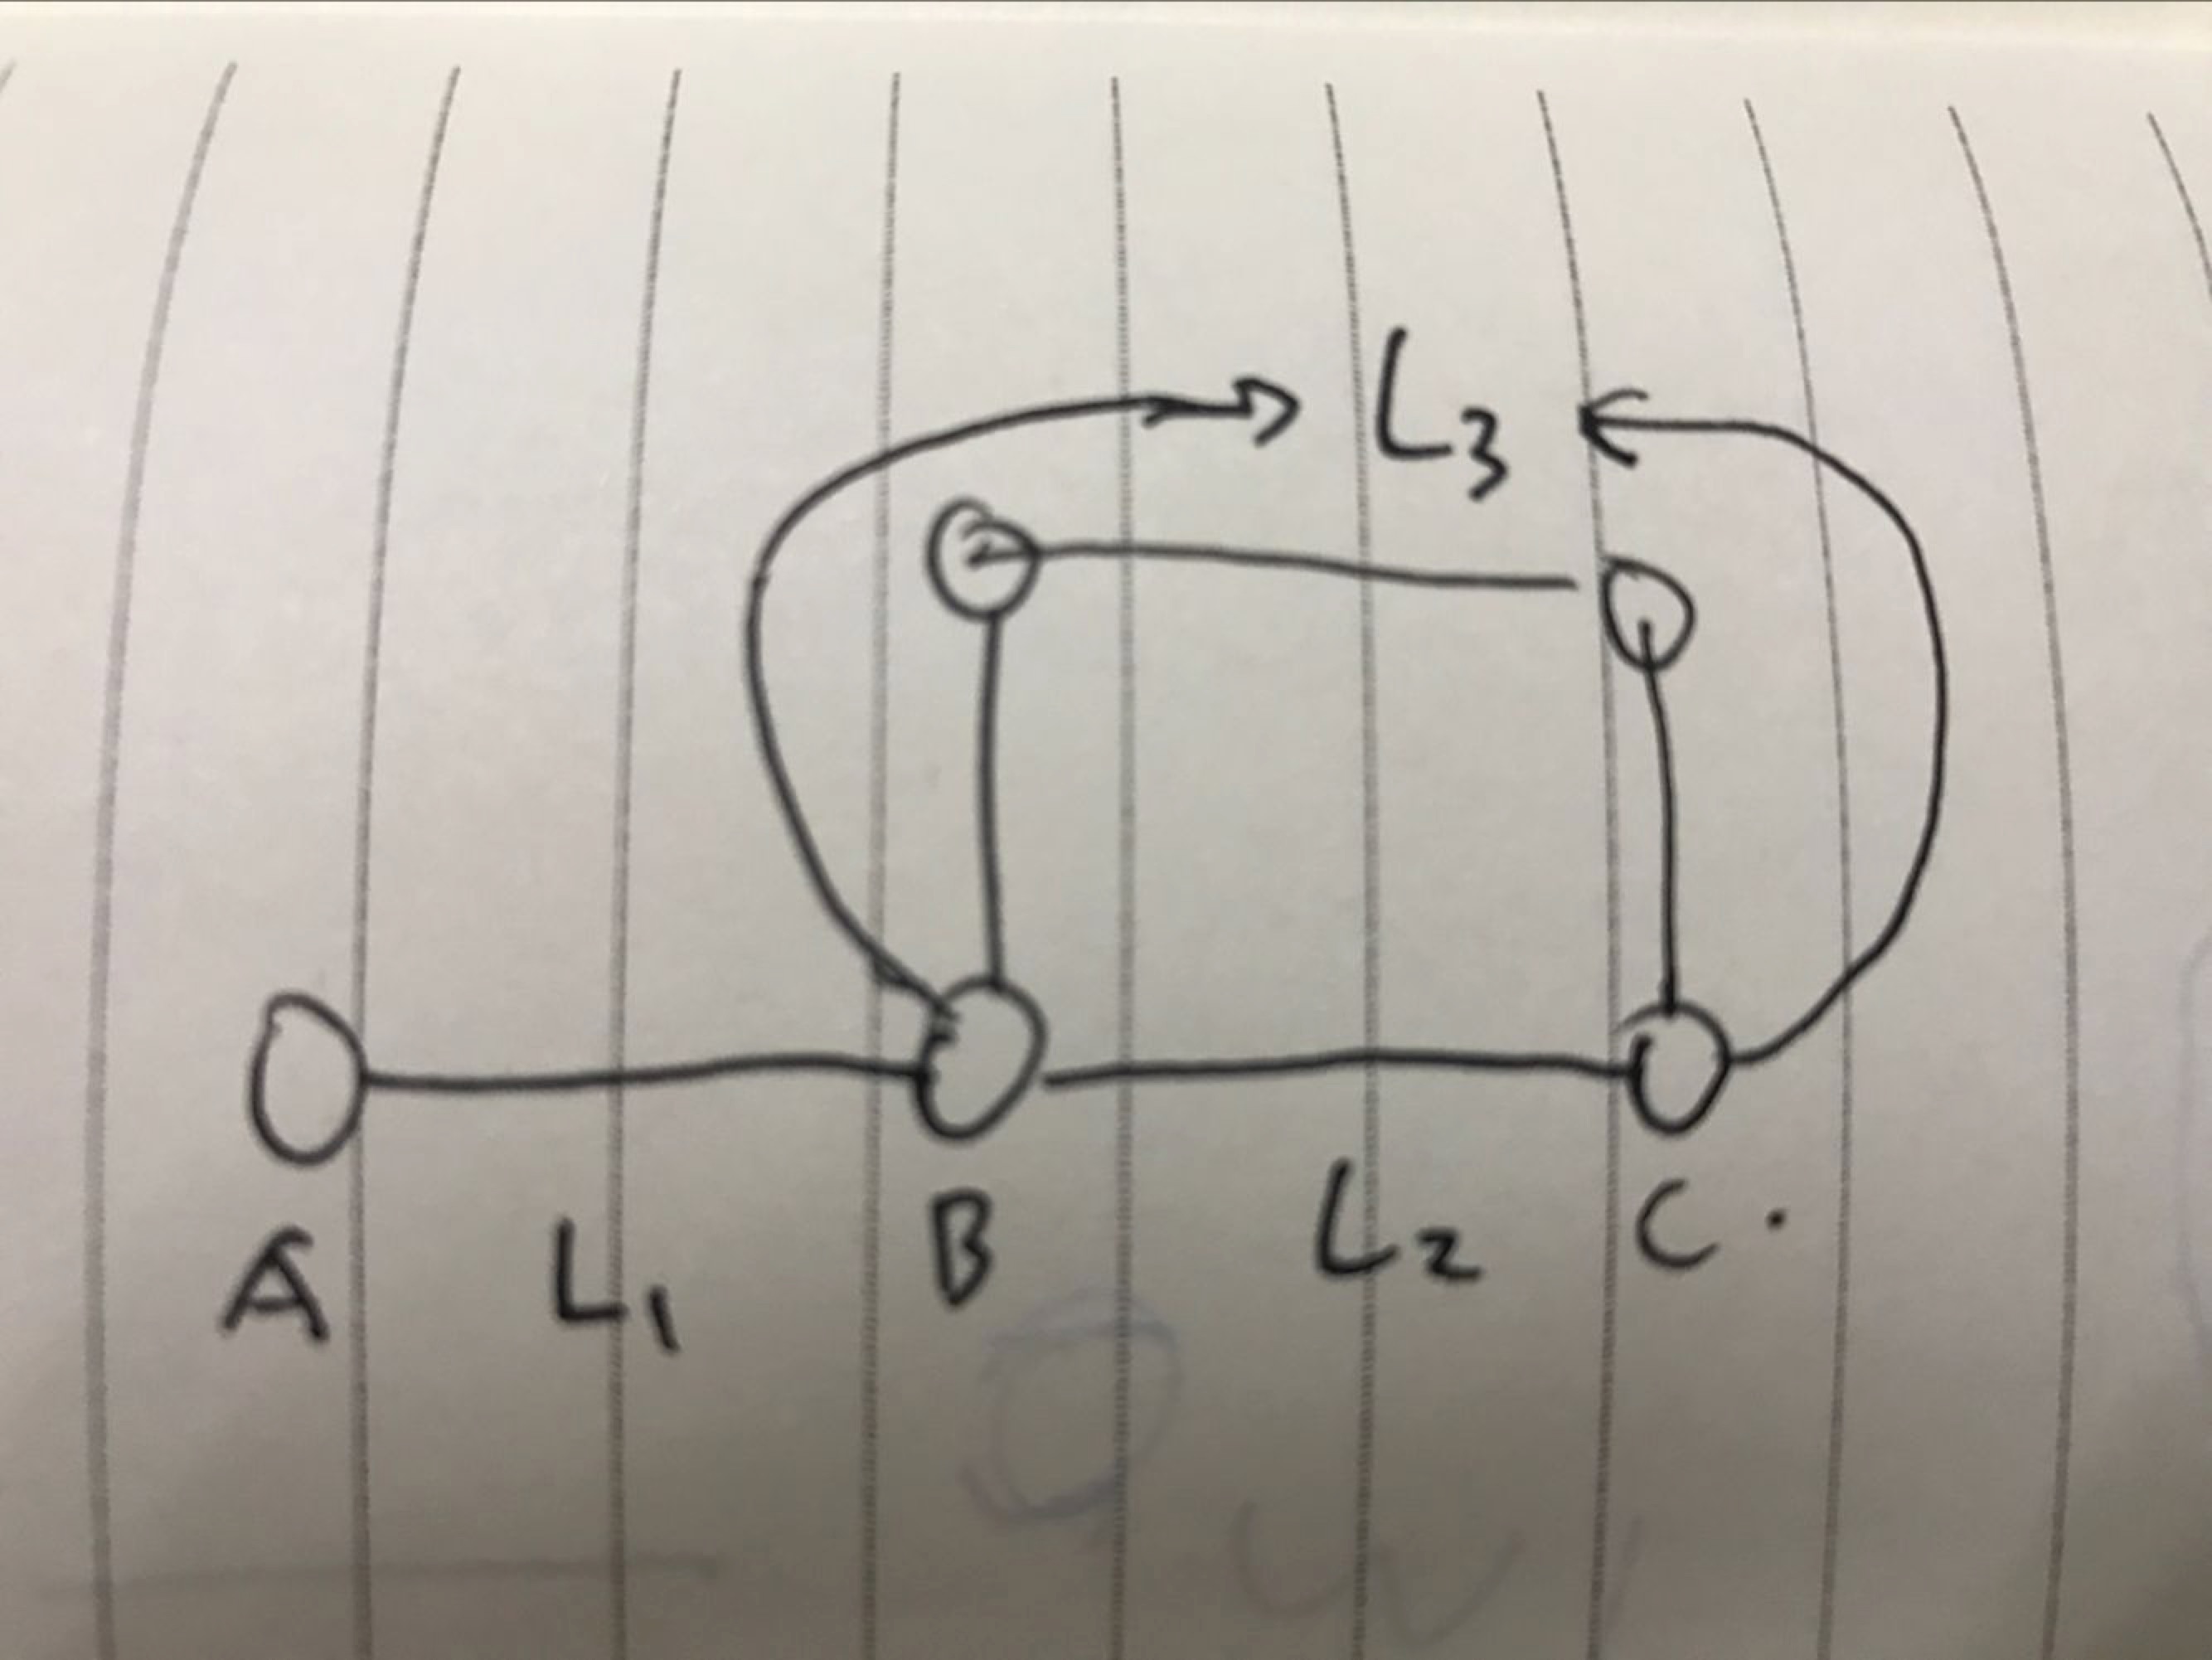 L3
A L1 B L2 C.